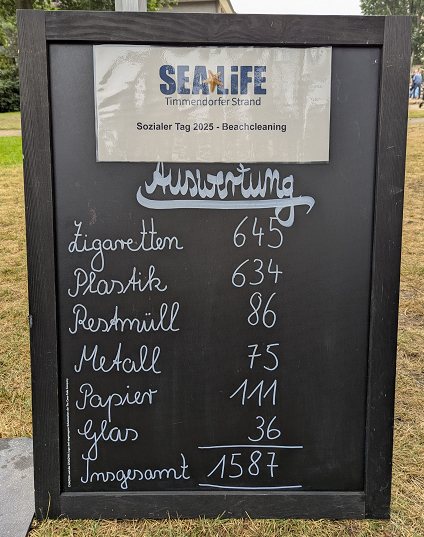 SEA LiFE
Timmendorfer Strand
Sozialer Tag 2025 - Beachcleaning
Auswertung
Zigaretten 645
Plastik 634
Restmüll 86
Metall 75
Papier 111
Glas 36
Insgesamt 1587